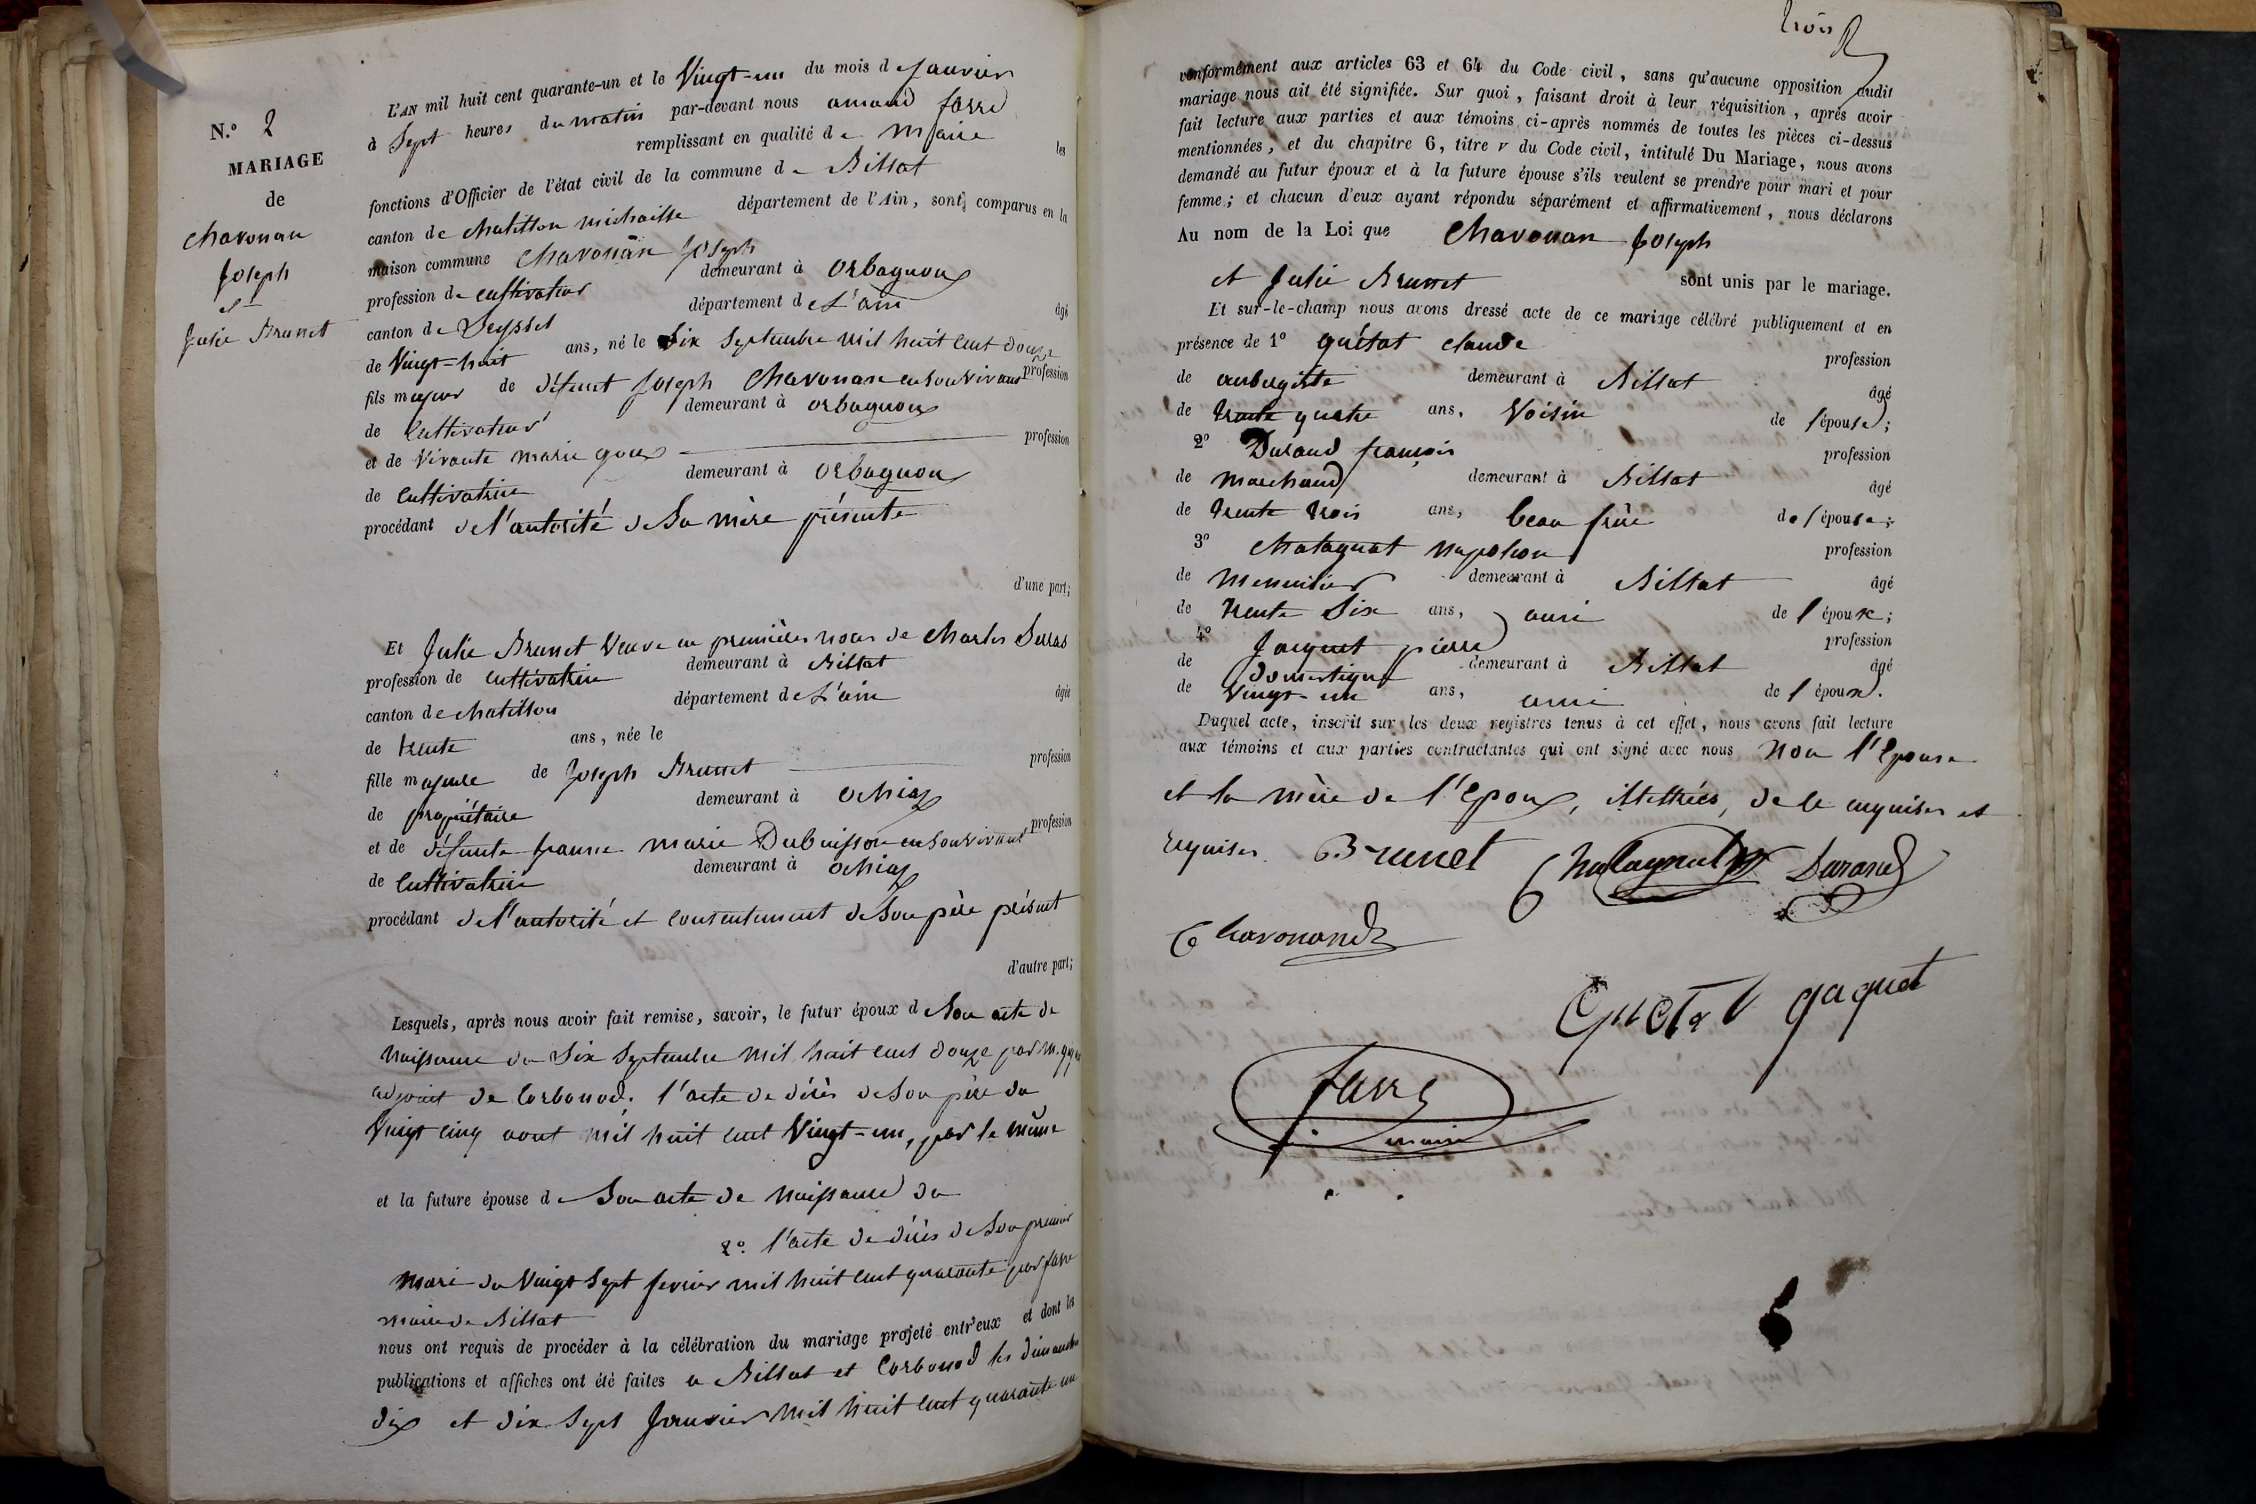 N.º 2
MARIAGE
de
Chavonan
Joseph
et
Julie Brunet
L'AN mil huit cent quarante-un et le Vingt-un du mois de Janvier
à Sept heures du matin par-devant nous amand farre
remplissant en qualité de Maire les
fonctions d'Officier de l'état civil de la commune de Billat
canton de Chatillon michaille département de l'Ain, sont comparus en la
maison commune Chavonan Joseph
profession de cultivateur demeurant à Orbagnoux
canton de Seyssel département de L'ain âgé
de Vingt-huit ans, né le Six Septembre mil huit cent douze
fils majeur de défunt Joseph Chavonan en son vivant profession
de cultivateur demeurant à orbagnoux
et de vivante marie goux profession
de cultivatrice demeurant à Orbagnoux
procédant de l'autorité de Sa mère présente
d'une part;
Et Julie Brunet Veuve en premières noces de Charles Serras
profession de cultivatrice demeurant à Billat
canton de Chatillon département de L'ain âgée
de trente ans, née le
fille majeure de Joseph Brunet profession
de propriétaire demeurant à Ochiaz
et de défunte jeanne marie Dubuisson en son vivant profession
de Cultivatrice demeurant à ochiaz
procédant de l'autorité et consentement de Son père présent
d'autre part;
Lesquels, après nous avoir fait remise, savoir, le futur époux de Son acte de
naissance du Six Septembre mil huit cent douze par m.
adjoint de Corbonod. l'acte de décès de Son père du
Vingt cinq aout mil huit cent Vingt-un, par le même
et la future épouse de Son acte de naissance du
2º. l'acte de décès de Son premier
mari du Vingt Sept fevrier mil huit cent quarante par farre
maire de Billat
nous ont requis de procéder à la célébration du mariage projeté entr'eux et dont les
publications et affiches ont été faites a Billat et Corbonod les dimanches
dix et dix Sept Janvier mil huit cent quarante un
trois
conformément aux articles 63 et 64 du Code civil, sans qu'aucune opposition audit
mariage nous ait été signifiée. Sur quoi, faisant droit à leur réquisition, après avoir
fait lecture aux parties et aux témoins ci-après nommés de toutes les pièces ci-dessus
mentionnées, et du chapitre 6, titre v du Code civil, intitulé Du Mariage, nous avons
demandé au futur époux et à la future épouse s'ils veulent se prendre pour mari et pour
femme; et chacun d'eux ayant répondu séparément et affirmativement, nous déclarons
Au nom de la Loi que Chavonan Joseph
et Julie Brunet sont unis par le mariage.
Et sur-le-champ nous avons dressé acte de ce mariage célébré publiquement et en
présence de 1º quétat claude profession
de aubergiste demeurant à Billat âgé
de trente quatre ans, Voisin de l'épouse;
2º Durand françois profession
de marchand demeurant à Billat âgé
de trente trois ans, beau frère de l'épouse;
3º Chatagnat napoléon profession
de menuisier demeurant à Billat âgé
de trente Six ans, ami de l'époux;
4º Jaquet pierre profession
de domestique demeurant à Billat âgé
de Vingt-un ans, ami de l'époux.
Duquel acte, inscrit sur les deux registres tenus à cet effet, nous avons fait lecture
aux témoins et aux parties contractantes qui ont signé avec nous Non l'Epouse
et la mère de l'Epoux, illettrées, de ce enquises et
requises. Brunet Chatagnat Durand
Chavonand
Quetat gaquet
farre
maire